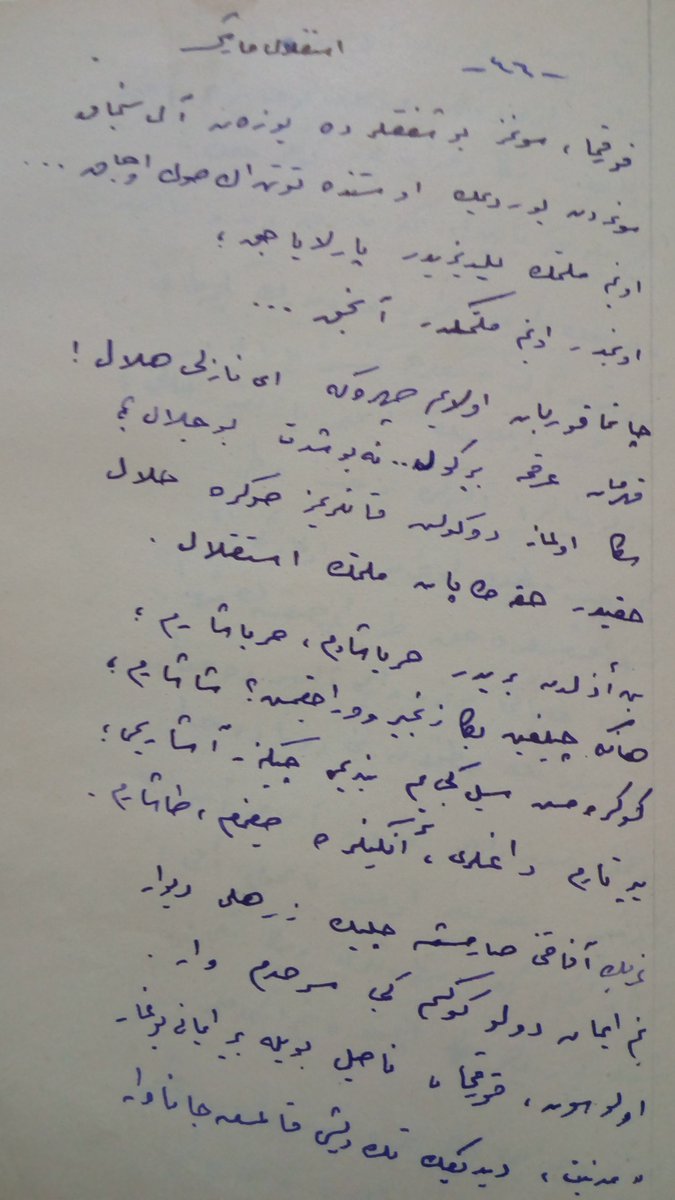 استقلال مارشی
-٤٤-
قورقما، سونمز بو شفقلرده یوزه‌ن آل سنجاق
سونمه‌دن یوردیمك اوستنده توته‌ن اك صوك اوجاق ...
او بنم ملتمك ییلدیزیدر پارلایاجق ؛
او بنمدر، او بنم ملتمكدر آنجق ...
چاتما قوربان اولایم چهره‌كی ای نازلی هلال !
قهرمان عرقمه بر گول.. نه بو شدت بو جلال ؟
سكا اولماز دوكولن قانلریمز صوكره حلال
حقیدر حقه طاپان ملتمك استقلال .
بن أزلدن بریدر حر یاشادم، حر یاشارم ؛
هانكی چیلغین بكا زنجیر ووراجقمش؟ شاشارم ؛
كوكره‌مش سیل كبی‌یم بندیمی چیكنر، آشارم ؛
ییرتارم داغلری، أنگینلره صیغمام، طاشارم .
غربك آفاقنی صارمشسه چلیك زرهلی دیوار
بنم ایمان دولو كوكسم كبی سرحدم وار .
اولوسون، قورقما، ناصل بویله بر ایمانی بوغار
«مدنیت» دیدیكك تك دیشی قالمش جاناوار